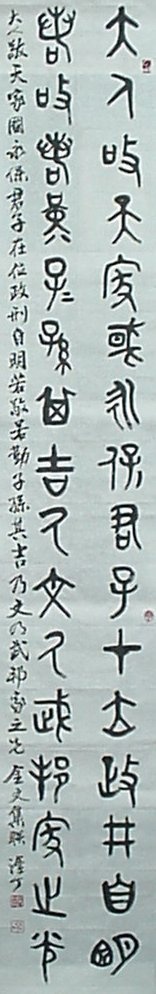 大人敬天家國永保君子在位政刑自明
若敬若勤子孫其吉乃文乃武邦家之光
大人敬天家國永保君子在位政刑自明若敬若勤子孫其吉乃文乃武邦家之光 金文集聯